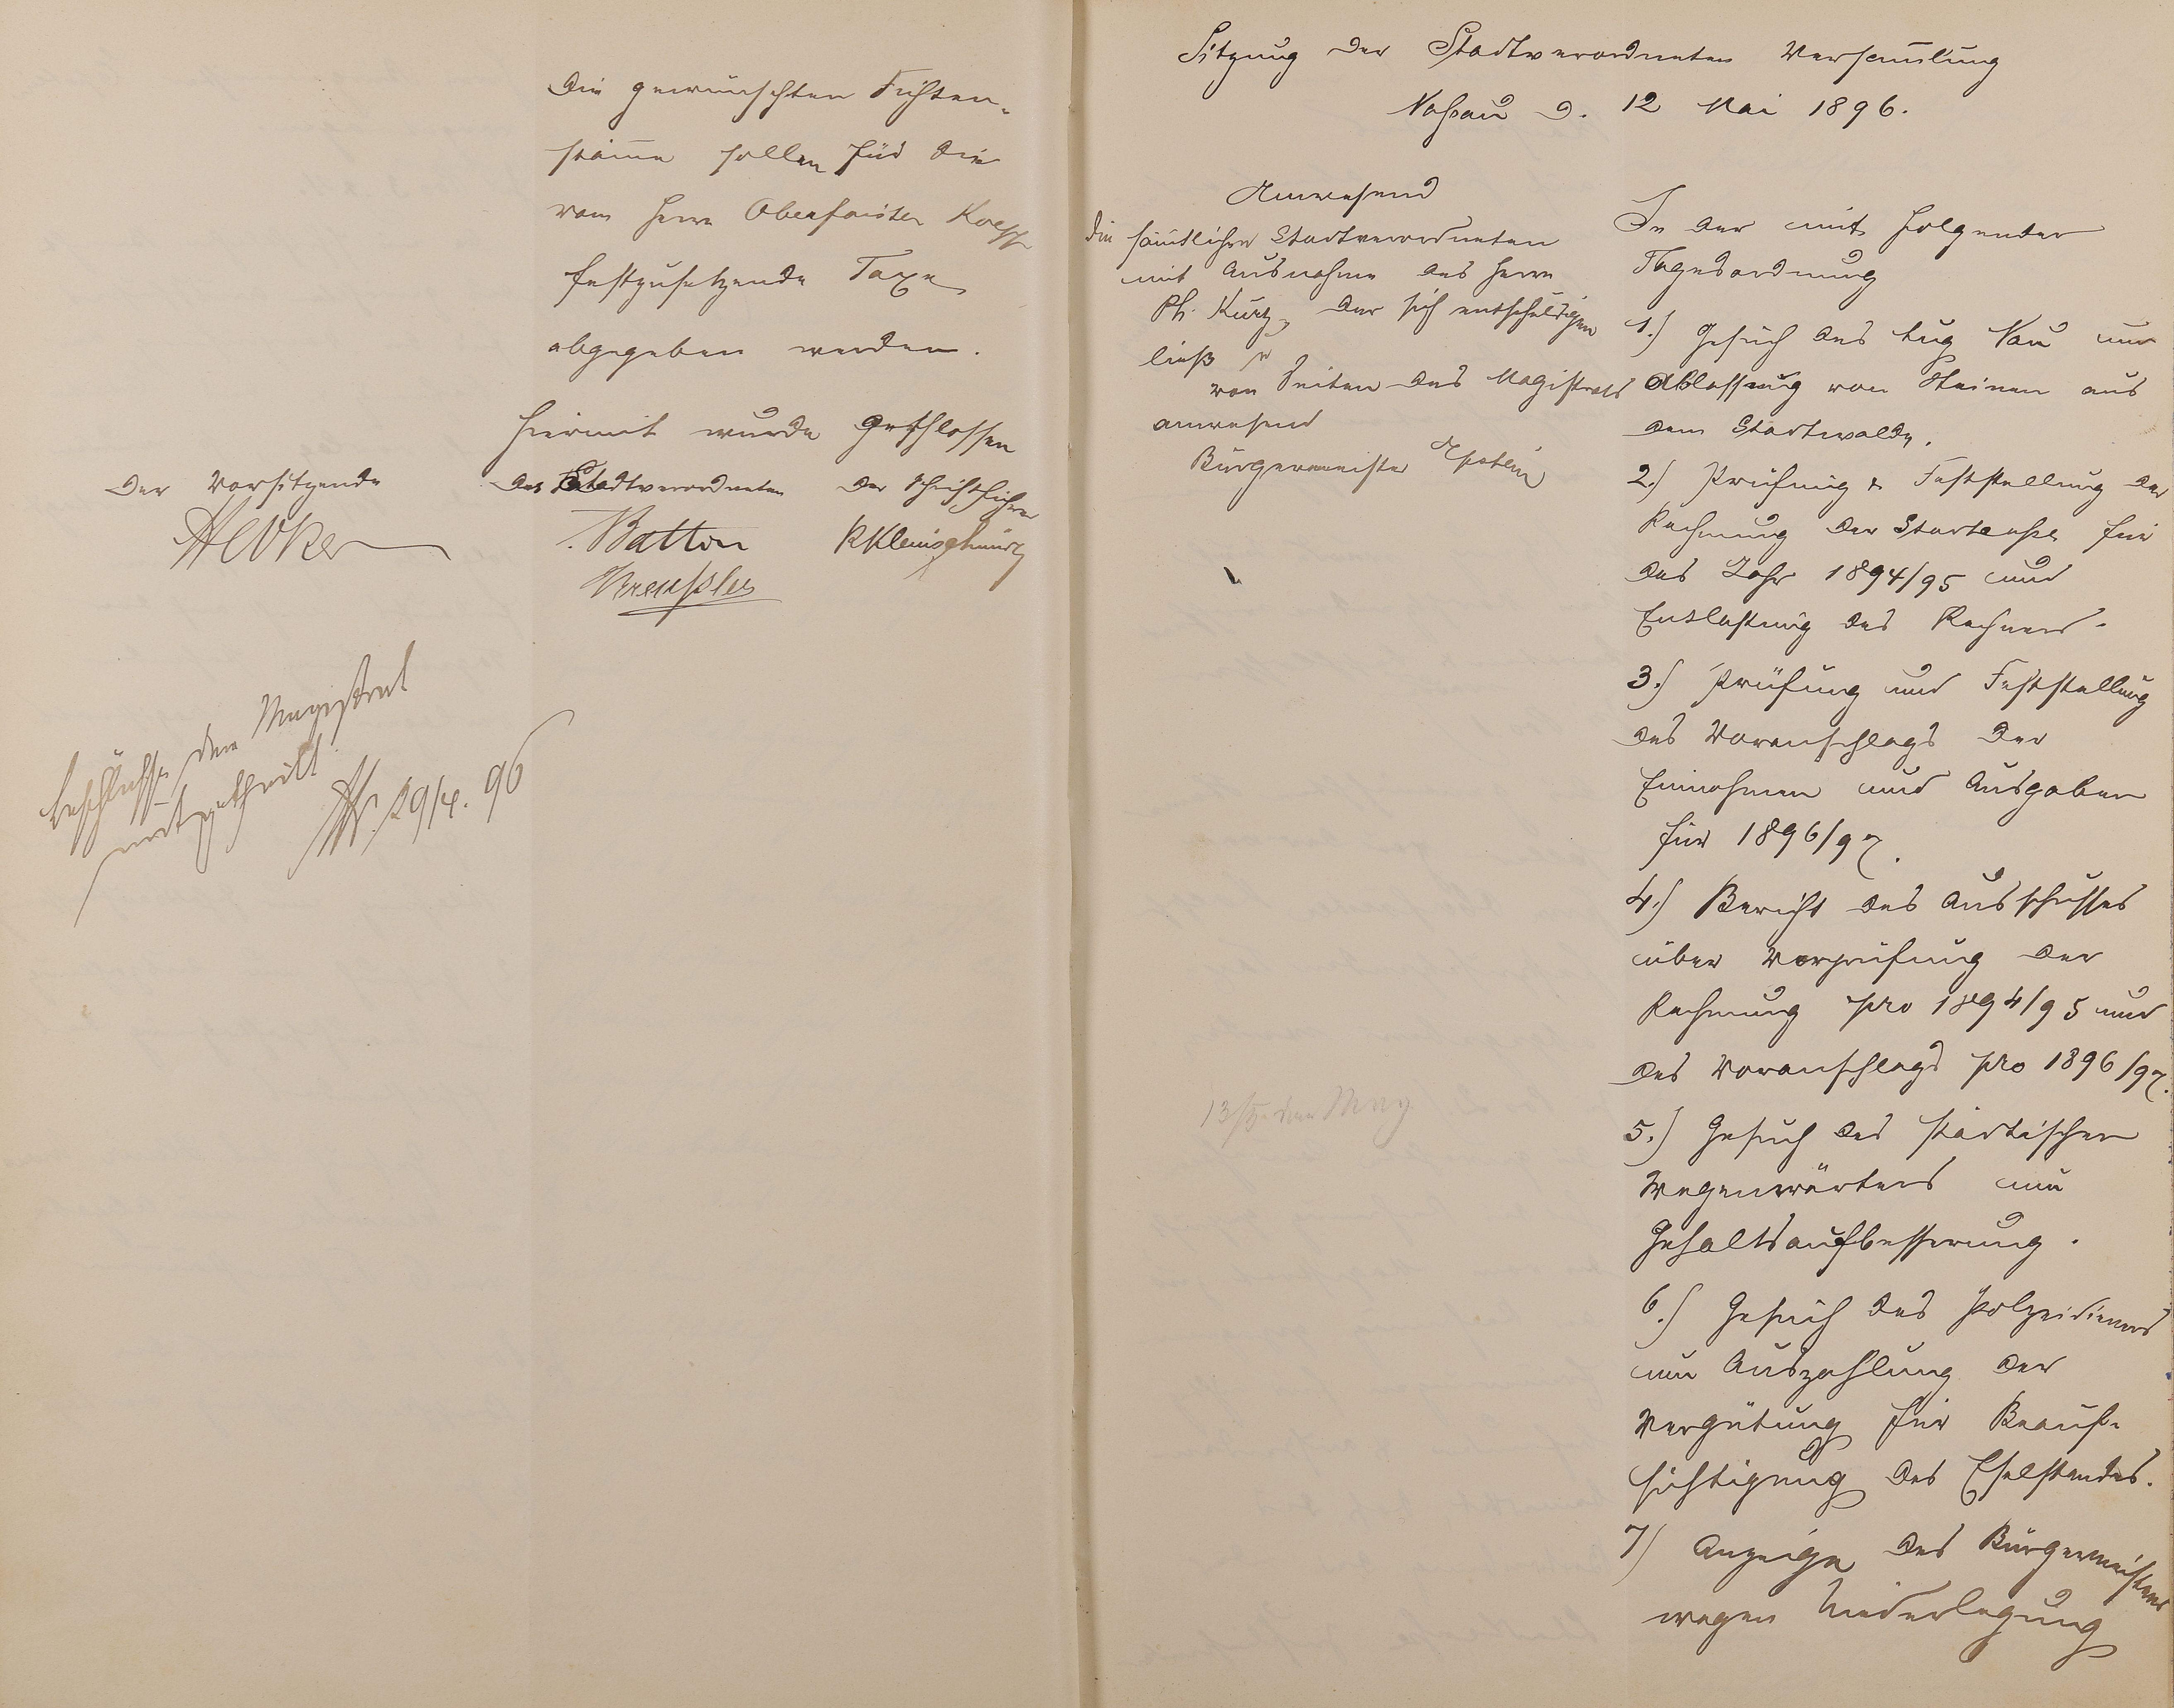 Die gewünschten Fichten-
stämme sollen für die
vom Herrn Oberförster Koepp
festzusetzende Taxe
abgegeben werden.
Hiermit wurde Geschlossen
Der Vorsitzende
Der Stadtverordneten
Der Schriftführer
Batton
R Kleinschmidt
Beschlüsse dem Magistrat
mitgetheilt
29/4. 96
Sitzung der Stadtverordneten Versam̅lung
Nassau d. 12 Mai 1896.
Anwesend
die säm̅tlichen Stadtverordneten
mit Ausnahme des Herrn
Ph. Kurtz, der sich entschuldigen
ließ
von Seiten des Magistrats
anwesend
Bürgermeister
13/5. dem Mag
In der mit folgender
Tagesordnung
1.) Gesuch des Aug Nau um
Ablassung von Steinen aus
dem Stadtwalde.
2.) Prüfung & Feststellung der
Rechnung der Stadtcasse für
das Jahr 1894/95 und
Entlastung des Rechners.
3.) Prüfung und Feststellung
des Voranschlags der
Einnahmen und Ausgaben
für 1896/97.
4.) Bericht des Ausschusses
über Vorprüfung der
Rechnung pro 1894/95 und
des Voranschlags pro 1896/97.
5.) Gesuch des städtischen
Wegewärters um
Gehaltsaufbesserung.
6.) Gesuch des Polizeidieners
um Auszahlung der
Vergütung für Beauf-
sichtigung des Eselstandes.
7) Anzeige des Bürgermeisters
wegen Niederlegung